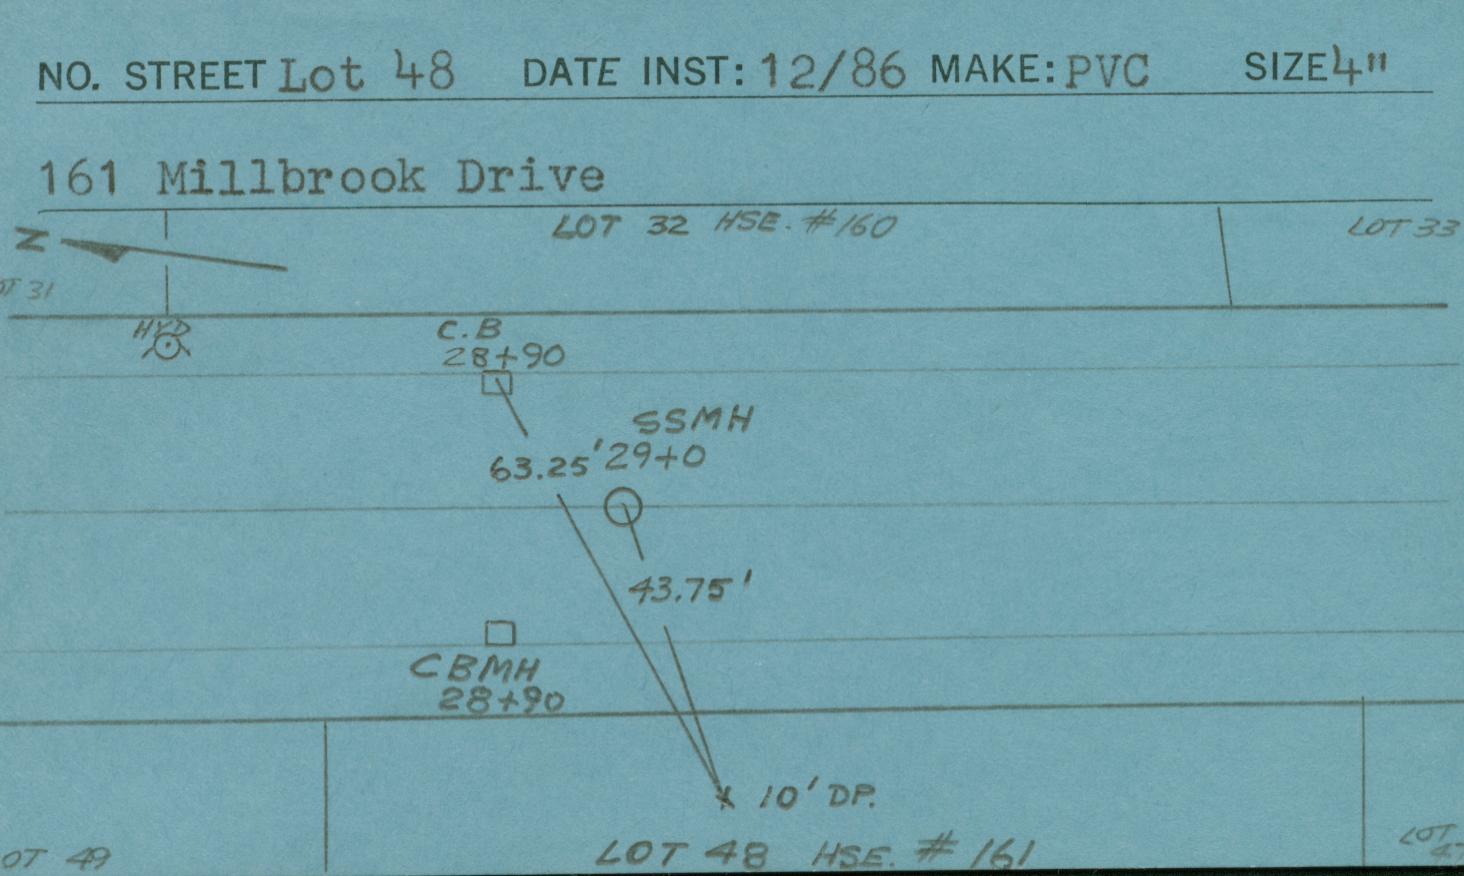 NO. STREET Lot 48 DATE INST: 12/86 MAKE: PVC SIZE 4"
161 Millbrook Drive
LOT 32 HSE. #160
LOT 33
N
OT 31
HYD
C.B
28+90
SSMH
63.25' 29+0
43.75'
CBMH
28+90
10' DP.
LOT 48 HSE. # 161
OT 49
LOT
47